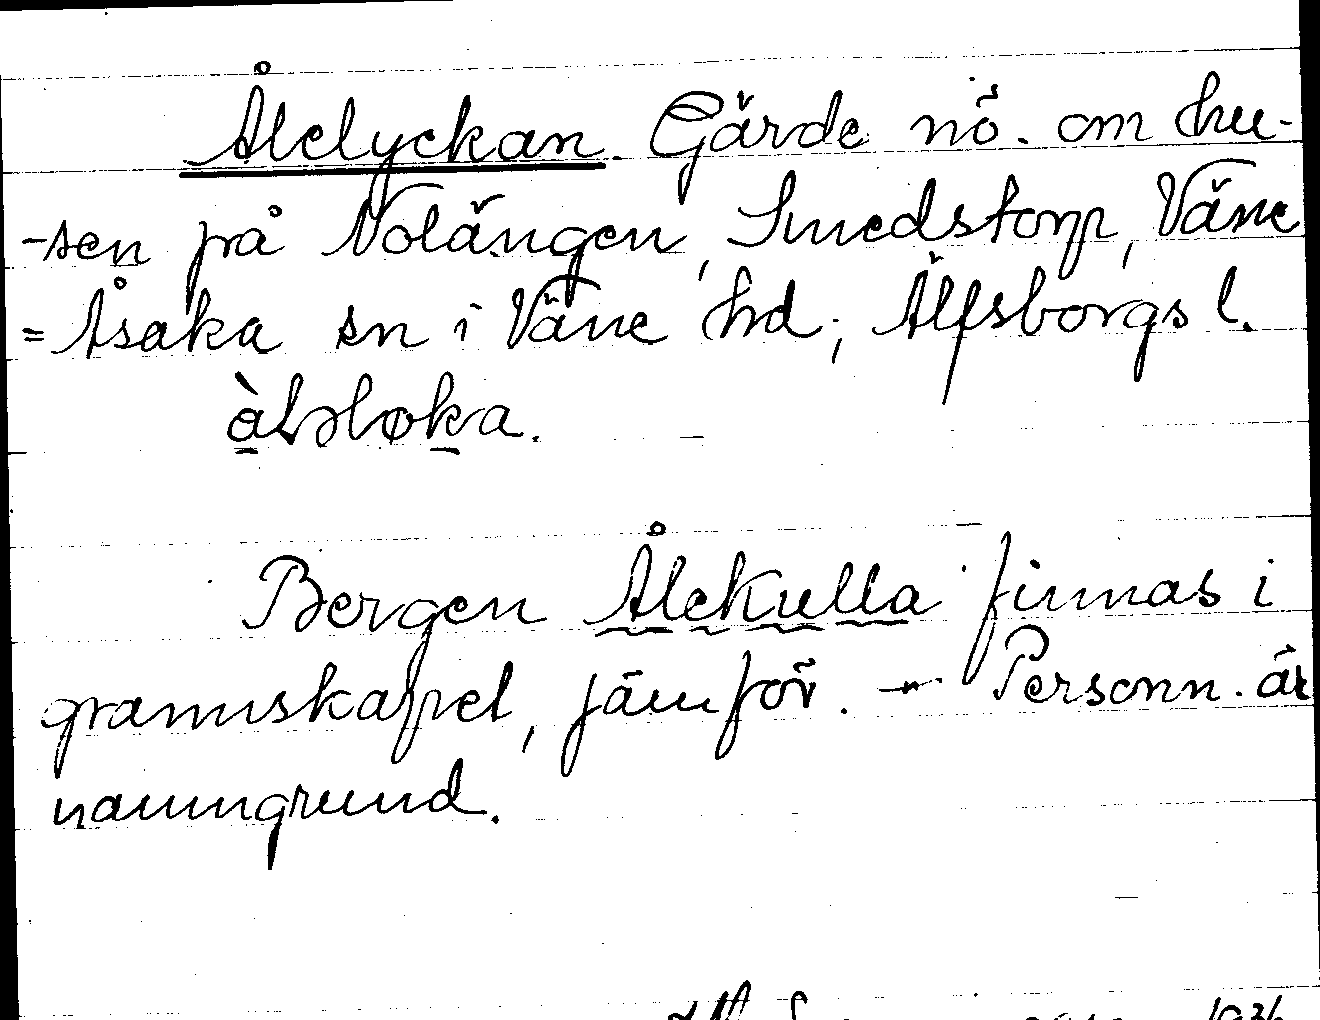 Ålelyckan. Gärde nö. om hu-
-sen på Nolängen, Smedstorp, Väne
=Åsaka sn i Väne hd, Älfsborgs l.
Bergen Ålekulla finnas i
grannskapet, jämför. — Personn. är
namngrund.